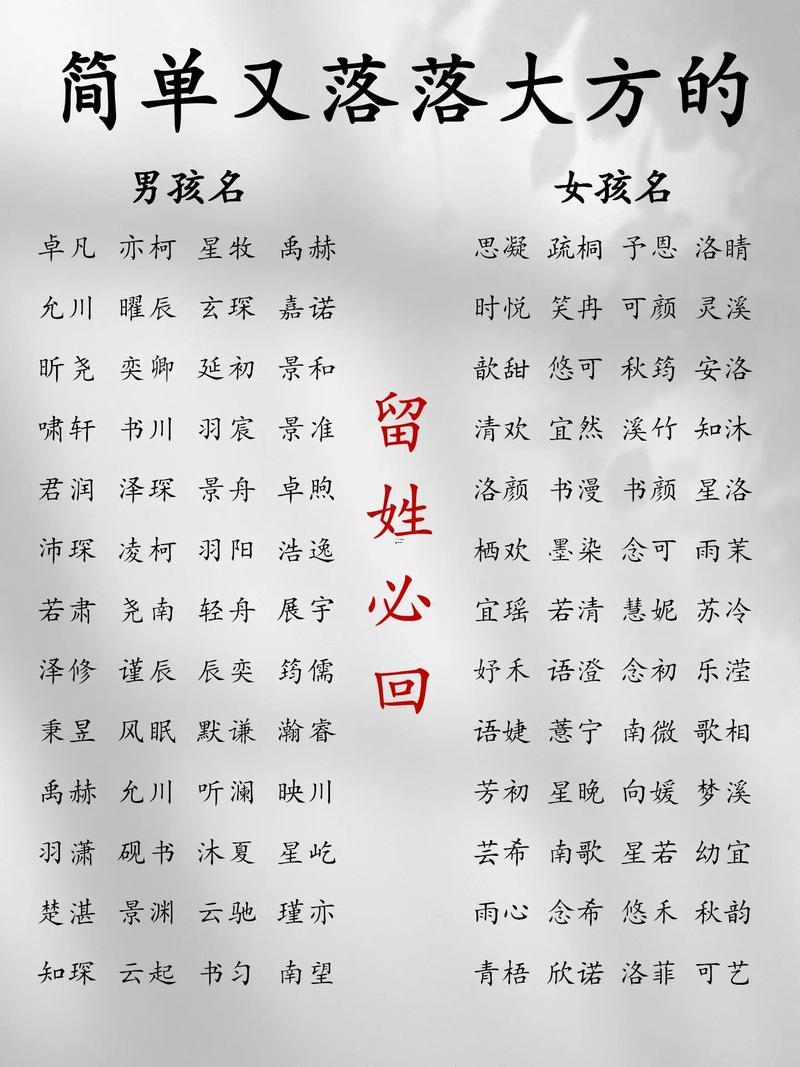 简单又落落大方的
男孩名
卓凡 亦柯 星牧 禹赫
允川 曜辰 玄琛 嘉诺
昕尧 奕卿 延初 景和
啸轩 书川 羽宸 景准
君润 泽琛 景舟 卓煦
沛琛 凌柯 羽阳 浩逸
若肃 尧南 轻舟 展宇
泽修 谨辰 辰奕 筠儒
秉昱 风眠 默谦 瀚睿
禹赫 允川 听澜 映川
羽潇 砚书 沐夏 星屹
楚湛 景渊 云驰 瑾亦
知琛 云起 书匀 南望
留姓必回
女孩名
思凝 疏桐 予恩 洛晴
时悦 笑冉 可颜 灵溪
歆甜 悠可 秋筠 安洛
清欢 宜然 溪竹 知沐
洛颜 书漫 书颜 星洛
栖欢 墨染 念可 雨茉
宜瑶 若清 慧妮 苏冷
妤禾 语澄 念初 乐滢
语婕 薏宁 南微 歌相
芳初 星晚 向媛 梦溪
芸希 南歌 星若 幼宜
雨心 念希 悠禾 秋韵
青梧 欣诺 洛菲 可艺